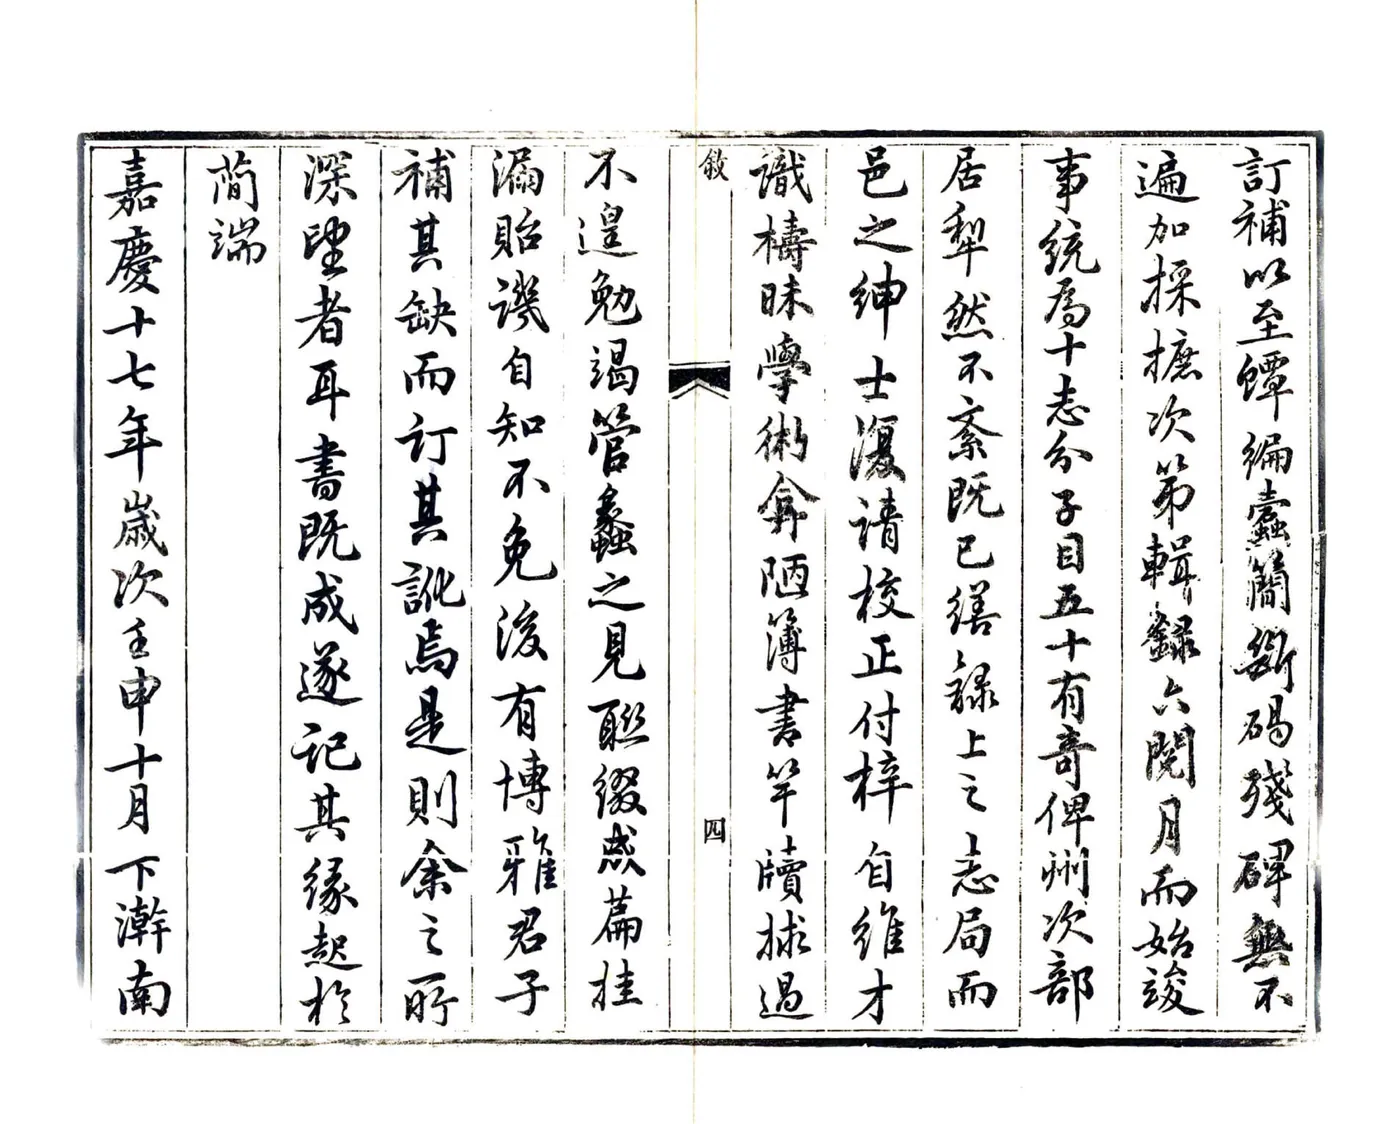 訂補以至蟫編蠹簡斷碣殘碑無不
遍加採摭次第輯錄六閱月而始竣
事統為十志分子目五十有奇俾州次部
居犁然不紊既已繕祿上之志局而
邑之紳士復請校正付梓自維才
識檮昧學術弇陋簿書竿牘捄過
敘
四
不遑勉竭管蠡之見聯綴成篇挂
漏貽譏自知不免後有博雅君子
補其缺而訂其訛焉是則余之所
深望者耳書既成遂記其緣起於
簡端
嘉慶十七年歲次壬申十月下澣南